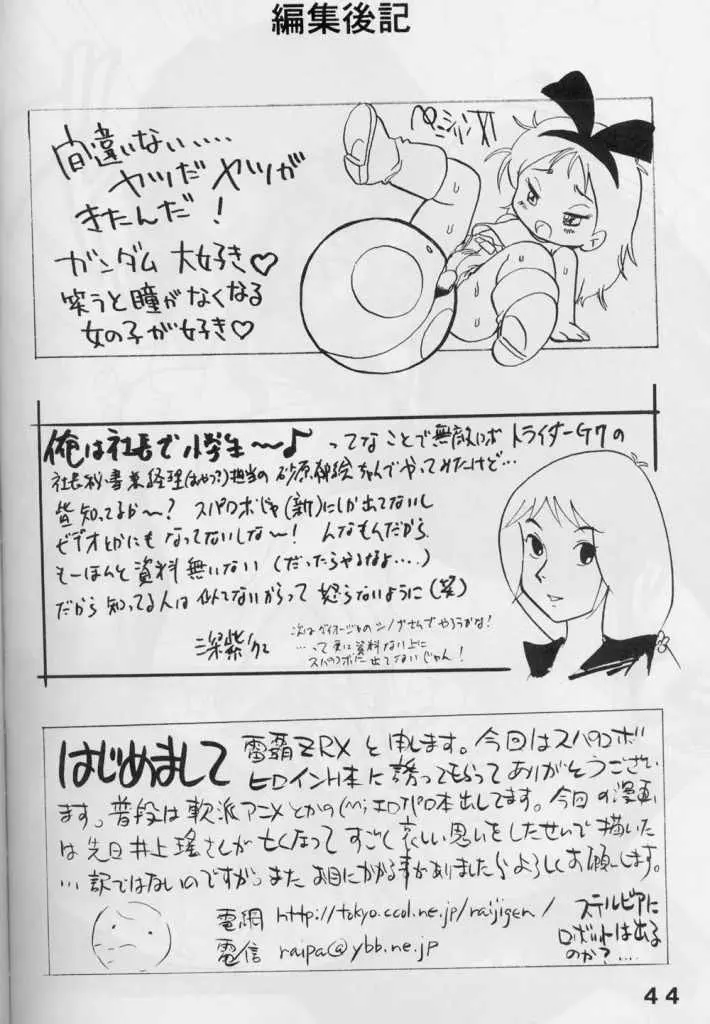 編集後記
間違いない....
ヤツだ ヤツが
きたんだ！
ガンダム 大好き♡
笑うと瞳がなくなる
女の子が好き♡
俺は社長で小学生～♪ ってなことで無敵ロボ トライダーG7の
社長秘書兼経理(おやつ?)担当の 砂原郁絵ちゃんでやってみたけど…
皆知ってるか～? スパロボじゃ(新)にしか出てないし
ビデオとかにもなってないしな～! んなもんだから
もーほんと資料無いない (だったらやるなよ....)
だから知ってる人は似てないからって 怒らないように(笑)
深紫
次はダイオージャのシノブさんでやろうかな!
…って更に資料ない上に
スパロボに出てないじゃん!
はじめまして 雷覇ZRXと申します。今回はスパロボ
ヒロインH本に誘ってもらってありがとうござい
ます。普段は軟派アニメとかの エロパロ本出してます。今回の漫画
は先日井上瑤さんが亡くなって すごく哀しい思いをしたせいで描いた
…訳ではないのですが。また お目にかかる事がありましたらよろしくお願いします。
電網 http://tokyo.ccol.ne.jp/raijigen/
電信 raipa@ybb.ne.jp
ステルビアに
ロボットは出る
のか?....
44